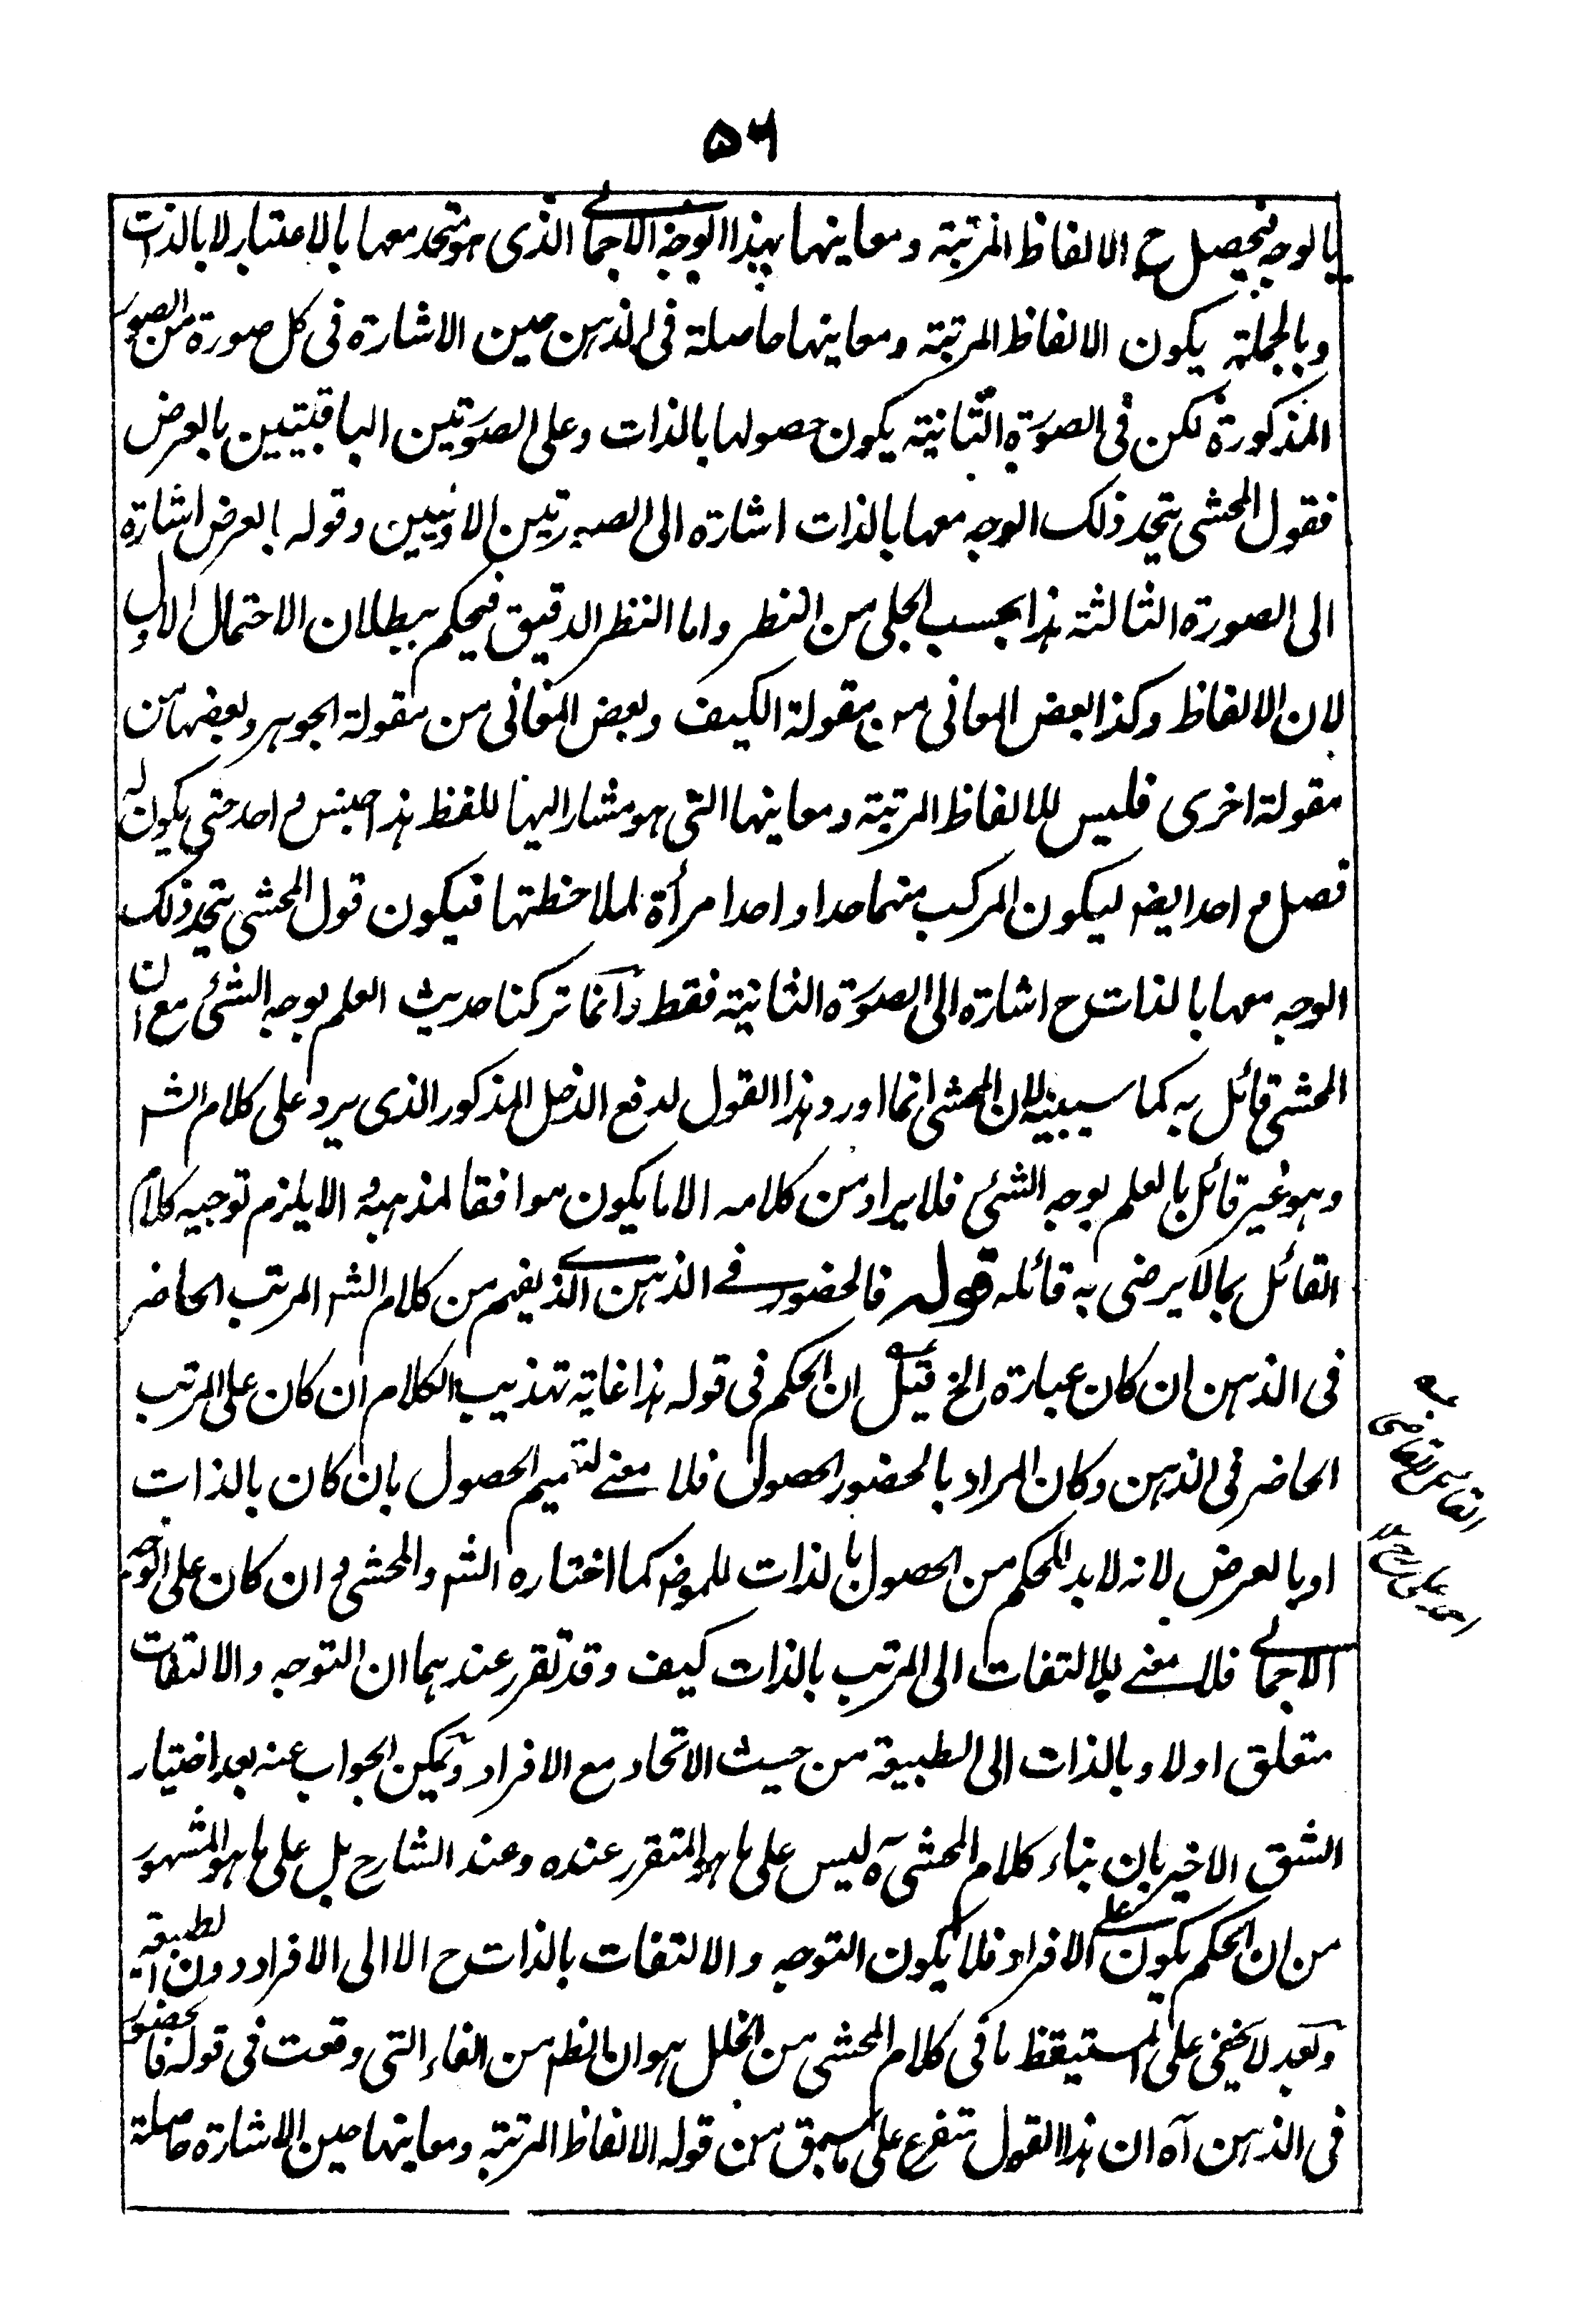 ۵۶
بالوجه فيحصل ح الالفاظ المرتبة ومعاينها بهذا الوجه الاجمالي الذى هو متحد معها بالاعتبار لا بالذات
وبالجملة يكون الالفاظ المرتبة ومعاينها حاصلة فى الذهن حين الاشارة فى كل صورة من الصور
المذكورة لكن فى الصورة الثانية يكون حصولها بالذات وعلى الصورتين الباقيتين بالعرض
فقول المحشى يتحد ذلك الوجه معها بالذات اشارة الى الصورتين الاوليين وقوله بالعرض اشارة
الى الصورة الثالثة هذا بحسب الجلى من النظر واما النظر الدقيق فيحكم ببطلان الاحتمال الاول
لان الالفاظ وكذا بعض المعانى من مقولة الكيف وبعض المعانى من مقولة الجوهر وبعضها من
مقولة اخرى فليس للالفاظ المرتبة ومعاينها التى هو مشار اليها للفظ هذا جنس واحد حتى يكون له
فصل واحد ايضا ليكون المركب منهما حدا واحدا مرأة لملاحظتها فيكون قول المحشى يتحد ذلك
الوجه معها بالذات ح اشارة الى الصورة الثانية فقط وانما تركنا حديث العلم بوجه الشئ مع ان
المحشى قائل به كما سيبينه لان المحشى انما اورد هذا القول لدفع الدخل المذكور الذى يرد على كلام الشر
وهو غير قائل بالعلم بوجه الشئ فلا يراد من كلامه الا ما يكون موافقا لمذهبه والا يلزم توجيه كلام
القائل بما لا يرضى به قائله قوله فالحضور فى الذهن الذى يفهم من كلام الشر المرتب الحاضر
فى الذهن ان كان عبارة الخ قيل ان الحكم فى قوله هذا غاية تهذيب الكلام ان كان على المرتب
الحاضر فى الذهن وكان المراد بالحضور الحصول فلا معنى لتعميم الحصول بان كان بالذات
او بالعرض لانه لا بد للحكم من الحصول بالذات للموضوع كما اختاره الشر والمحشى وان كان على الوجه
الاجمالي فلا معنى للالتفات الى المرتب بالذات كيف وقد تقرر عندهما ان التوجه والالتفات
متعلق اولا وبالذات الى الطبيعة من حيث الاتحاد مع الافراد ويمكن الجواب عنه بعد اختيار
الشق الاخير بان بناء كلام المحشى آه ليس على ما هو المتقرر عنده وعند الشارح بل على ما هو المشهور
من ان الحكم يكون على الافراد فلا يكون التوجه والالتفات بالذات ح الا الى الافراد دون الطبيعة
وبعد لا يخفى على المستيقظ ما فى كلام المحشى من الخلل هو ان الظم من الفاء التى وقعت فى قوله فالحضور
فى الذهن آه ان هذا القول متفرع على ما سبق من قوله الالفاظ المرتبة ومعاينها حين الاشارة حاصلة